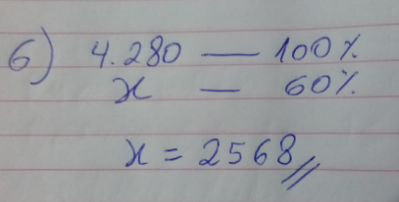 6) 4.280 — 100%
x — 60%
x = 2568//